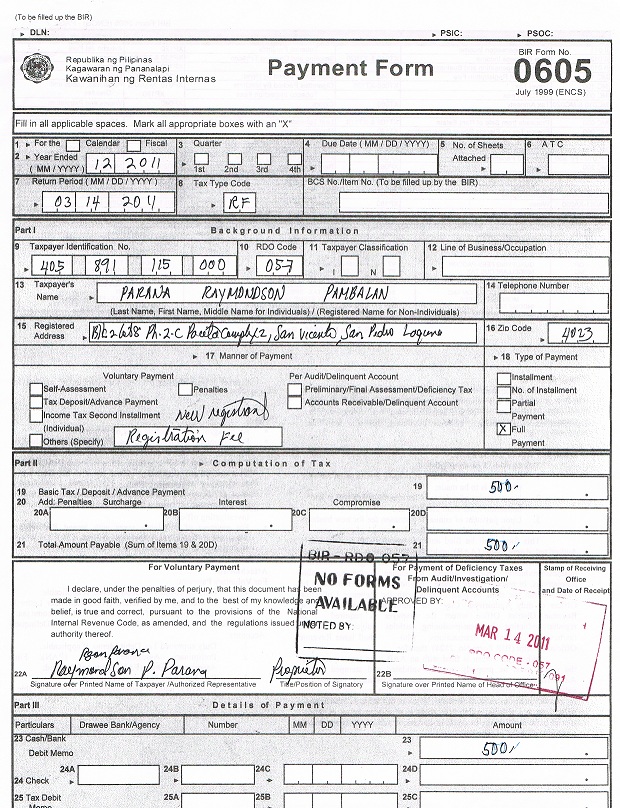 (To be filled up the BIR)
DLN: PSIC: PSOC:
Republika ng Pilipinas
Kagawaran ng Pananalapi
Kawanihan ng Rentas Internas
Payment Form
BIR Form No.
0605
July 1999 (ENCS)
Fill in all applicable spaces. Mark all appropriate boxes with an "X"
1 For the Calendar Fiscal
2 Year Ended
( MM / YYYY ) 12 2011
3 Quarter
1st 2nd 3rd 4th
4 Due Date ( MM / DD / YYYY)
5 No. of Sheets
Attached
6 A T C
7 Return Period ( MM / DD / YYYY )
03 14 2011
8 Tax Type Code
RF
BCS No./Item No. (To be filled up by the BIR)
Part I Background Information
9 Taxpayer Identification No.
405 891 115 000
10 RDO Code
057
11 Taxpayer Classification
I N
12 Line of Business/Occupation
13 Taxpayer's
Name PARANA RAYMONDSON PAMBALAN
(Last Name, First Name, Middle Name for Individuals) / (Registered Name for Non-Individuals)
14 Telephone Number
15 Registered
Address Ph. 2-C Pacita Complx 2, San Vicente, San Pedro Laguna
16 Zip Code 4023
17 Manner of Payment
18 Type of Payment
Voluntary Payment
Per Audit/Delinquent Account
Self-Assessment
Penalties
Tax Deposit/Advance Payment
Income Tax Second Installment
(Individual)
Others (Specify)
New registrant
Registration Fee
Preliminary/Final Assessment/Deficiency Tax
Accounts Receivable/Delinquent Account
Installment
No. of Installment
Partial
Payment
X Full
Payment
Part II Computation of Tax
19 Basic Tax / Deposit / Advance Payment 19 500
20 Add: Penalties Surcharge Interest Compromise
20A 20B 20C 20D
21 Total Amount Payable (Sum of Items 19 & 20D) 21 500
For Voluntary Payment
I declare, under the penalties of perjury, that this document has been
made in good faith, verified by me, and to the best of my knowledge and
belief, is true and correct, pursuant to the provisions of the National
Internal Revenue Code, as amended, and the regulations issued under
authority thereof.
BIR - RDO 057
NO FORMS
AVAILABLE
NOTED BY:
For Payment of Deficiency Taxes
From Audit/Investigation/
Delinquent Accounts
APPROVED BY:
Stamp of Receiving
Office
and Date of Receipt
MAR 14 2011
RDO CODE - 057
22A Raymondson P. Parana Proprietor
Signature over Printed Name of Taxpayer /Authorized Representative Title/Position of Signatory
22B
Signature over Printed Name of Head of Office
Part III Details of Payment
Particulars Drawee Bank/Agency Number MM DD YYYY Amount
23 Cash/Bank
Debit Memo 23 500
24 Check 24A 24B 24C 24D
25 Tax Debit 25A 25B 25C
Memo